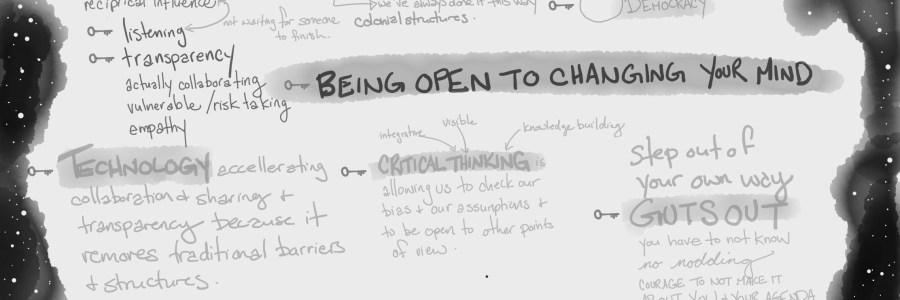 reciprical influence
not waiting for someone
to finish.
we've always done it this way
colonial structures.
DEMOCRACY
listening
transparency
actually collaborating
vulnerable/risk taking
empathy
BEING OPEN TO CHANGING YOUR MIND
TECHNOLOGY accellerating
collaboration & sharing &
transparency because it
removes traditional barriers
& structures.
integrative
visible
knowledge building
CRITICAL THINKING is
allowing us to check our
bias & our assumptions &
to be open to other points
of view.
Step out of
your own way
GUTS OUT
you have to not know
no nodding
COURAGE TO NOT MAKE IT
ABOUT YOU & YOUR AGENDA